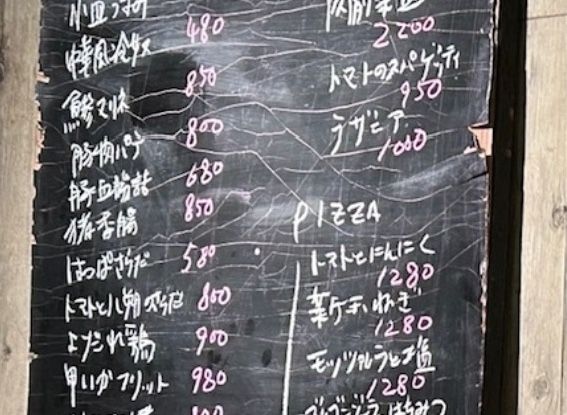 小皿つまみ
480
中華風冷奴
850
鯵て
800
豚肉パテ
680
豚血腸詰
850
猪香腸
580
はっぱさらだ
トマトと八朔のさらだ 800
よだれ鶏 900
甲いかフリット 980
2200
トマトのスパゲッティ
950
ラザニア
1000
PIZZA
トマトとにんにく
1280
葉ケチャねぎ
1280
モッツァレラと塩
1280
ゴルゴンゾーラ はちみつ